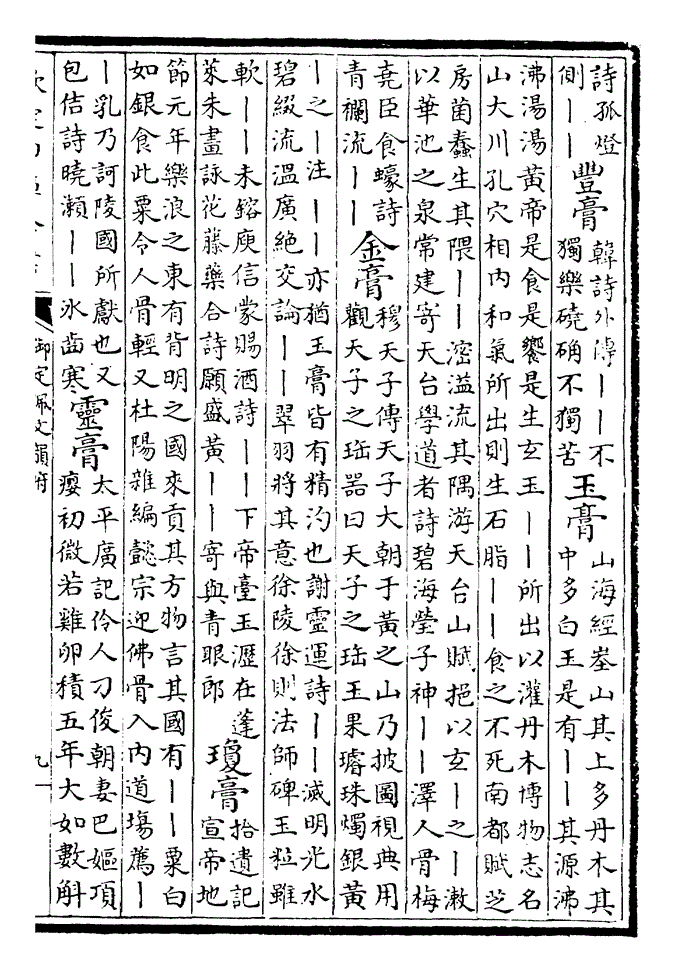 詩孤燈
側丨丨
豐膏
韓詩外傳丨丨不
獨樂磽确不獨苦
玉膏
山海經峚山其上多丹木其
中多白玉是有丨丨其源沸
沸湯湯黃帝是食是饗是生玄玉丨丨所出以灌丹木博物志名
山大川孔穴相內和氣所出則生石脂丨丨食之不死南都賦芝
房菌蠢生其隈丨丨滵溢流其隅游天台山賦挹以玄丨之丨漱
以華池之泉常建寄天台學道者詩碧海瑩子神丨丨澤人骨梅
堯臣食蠔詩
青襴流丨丨
金膏
穆天子傳天子大朝于黃之山乃披圖視典用
觀天子之珤器曰天子之珤玉果璿珠燭銀黃
丨之丨注丨丨亦猶玉膏皆有精汋也謝靈運詩丨丨滅明光水
碧綴流溫廣絶交論丨丨翠羽將其意徐陵徐則法師碑玉粒雖
軟丨丨未鎔庾信蒙賜酒詩丨丨下帝臺玉瀝在蓬
萊朱晝詠花藤藥合詩願盛黃丨丨寄與青眼郎
瓊膏
拾遺記
宣帝地
節元年樂浪之東有背明之國來貢其方物言其國有丨丨粟白
如銀食此粟令人骨輕又杜陽雜編懿宗迎佛骨入內道塲薦丨
丨乳乃訶陵國所獻也又
包佶詩曉瀨丨丨冰齒寒
靈膏
太平廣記伶人刁俊朝妻巴嫗項
癭初微若雞卵積五年大如數斛
御定佩文韻府
九